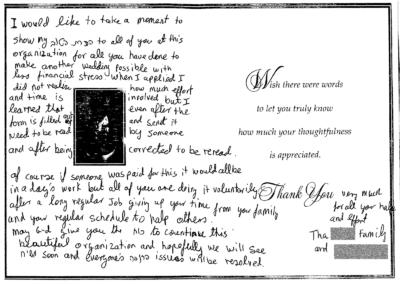 I would like to take a moment to
show my הכרת הטוב to all of you at this
organization for all you have done to
make another wedding possible with
less financial stress. When I applied I
did not realize how much effort
and time is involved but I
learned that even after the
form is filled out and sent it
need to be read by someone
and after being corrected to be reread.
of course if someone was paid for this it would all be
in a day's work but all of you are doing it voluntarily
after a long regular Job giving up your time from your family
and your regular schedule to help others.
may G-d give you the כח to countinue this
beautiful organization and hopefully we will see
משיח soon and everyone's issues will be resolved.
Wish there were words
to let you truly know
how much your thoughtfulness
is appreciated.
Thank You very much
for all your help
and effort
The Family
and